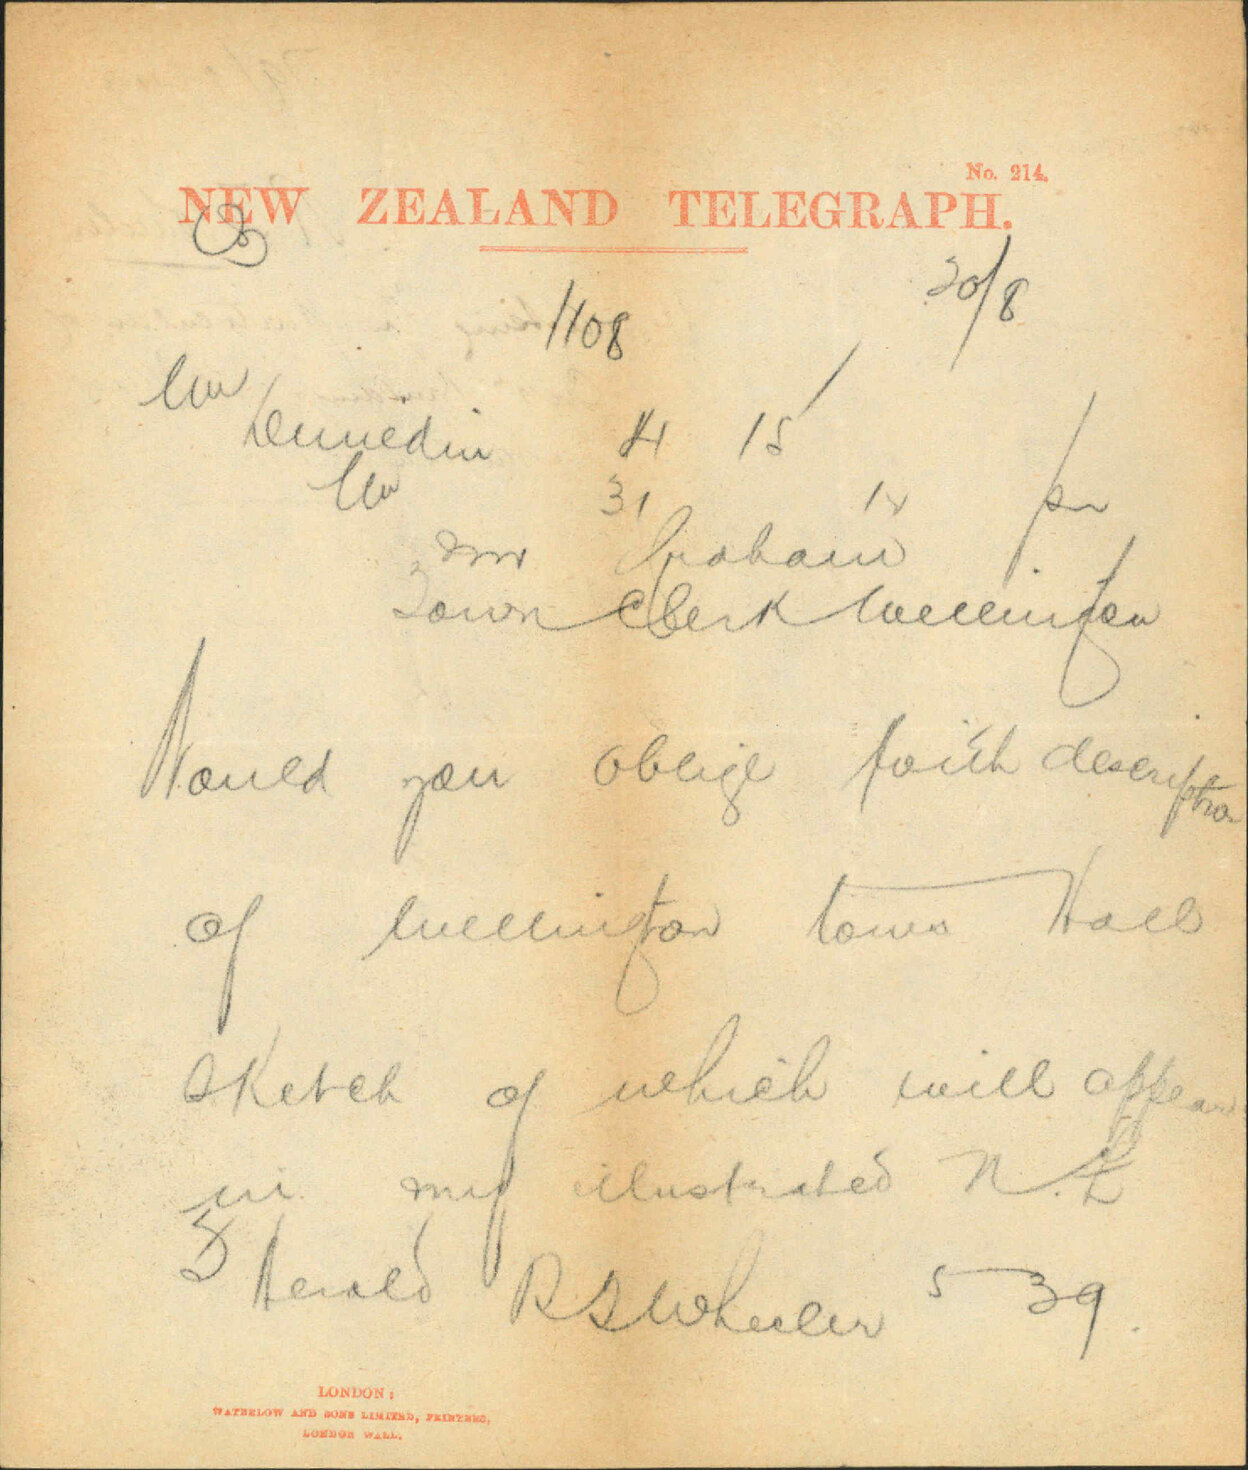 No. 214.
NEW ZEALAND TELEGRAPH.
20/8
1108
Dunedin 15
31
Mr Graham
Town Clerk Wellington
Would you oblige with description
of Wellington town Hall
sketch of which will appear
in my illustrated N.Z
Herald R S Wheeler 5 39
LONDON:
WATERLOW AND SONS LIMITED, PRINTERS,
LONDON WALL.